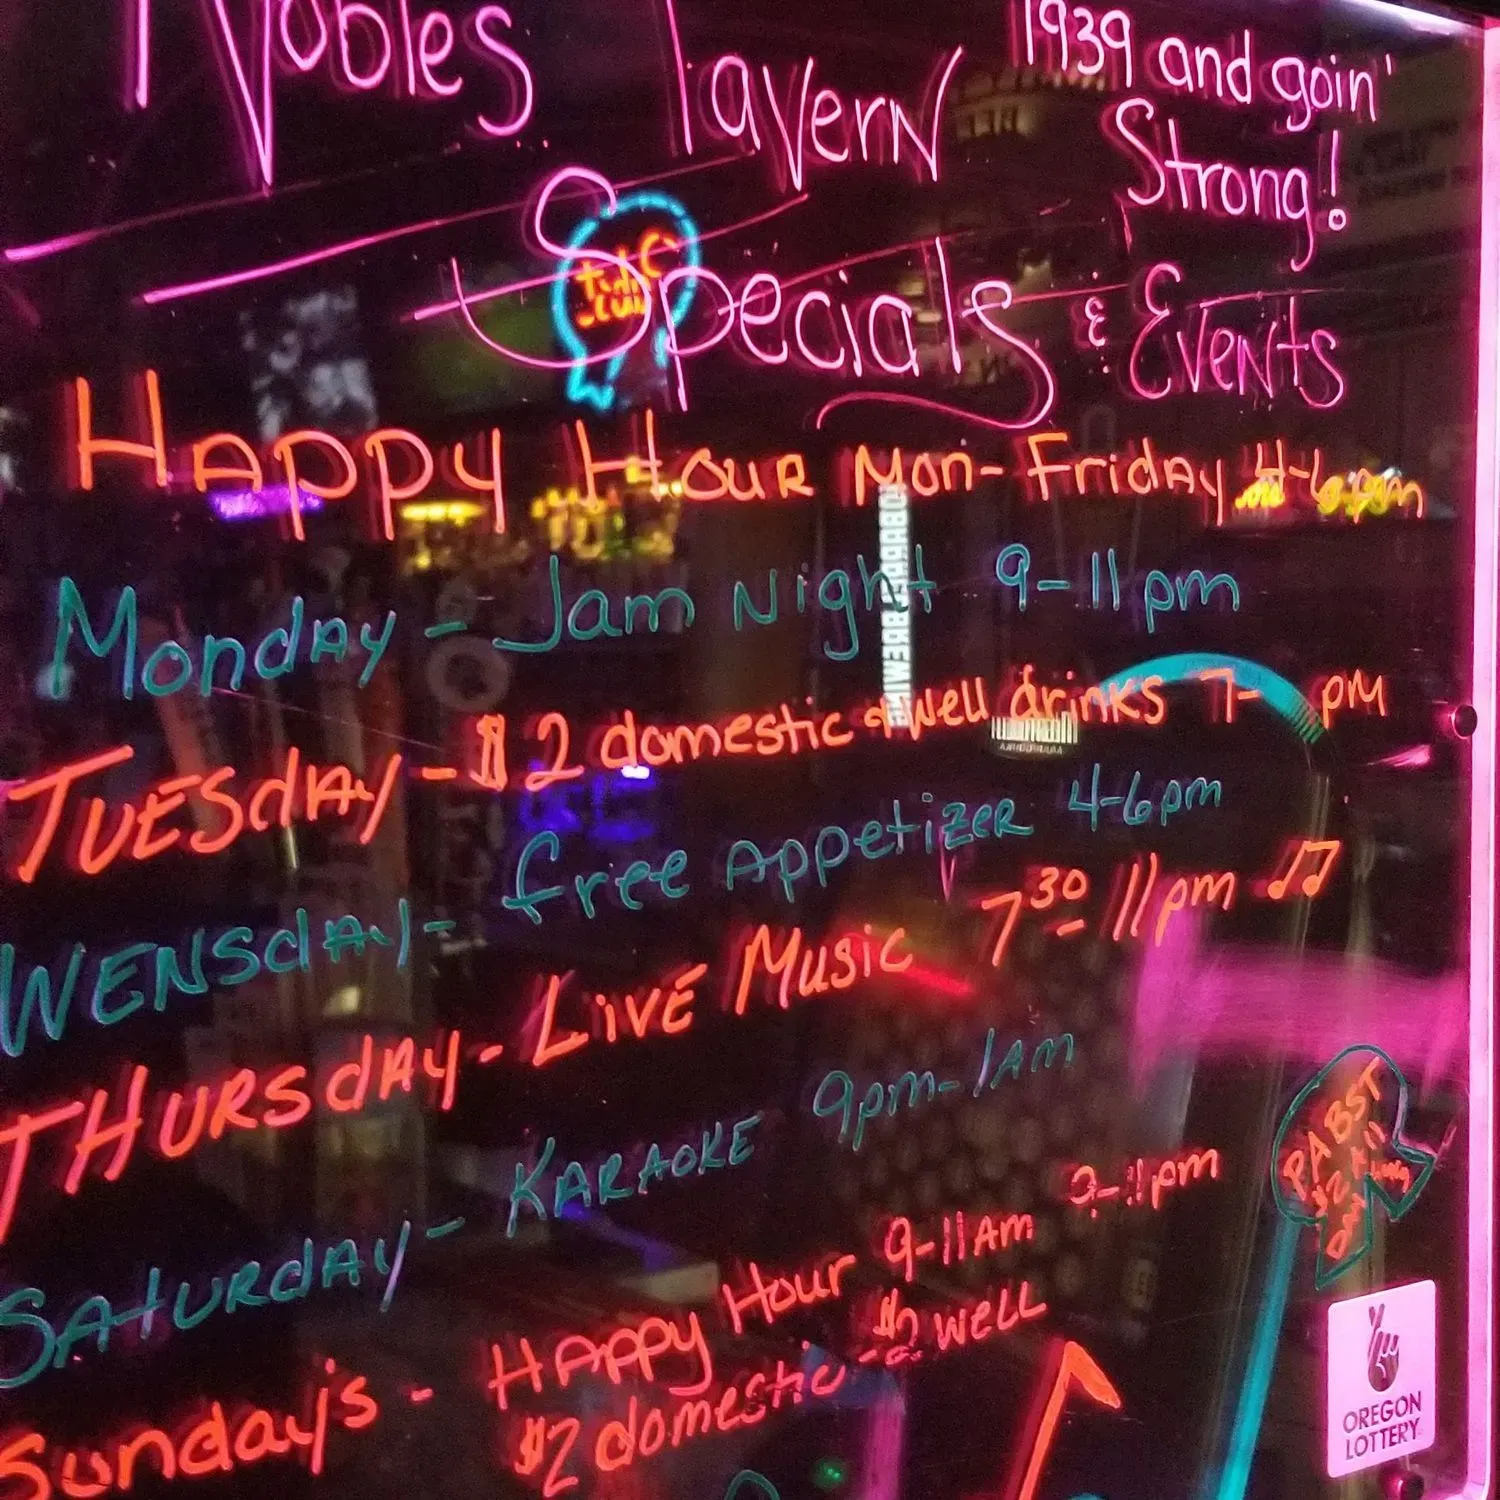 Nobles Tavern
1939 and goin'
Strong!
Specials & Events
Happy Hour Mon-Friday 4-6pm
Monday - Jam Night 9-11pm
Tuesday - $2 domestic & well drinks 7- pm
Wensday - free Appetizer 4-6pm
Thursday - Live Music 7 30 - 11pm
Saturday - Karaoke 9pm-1am
Sunday's - Happy Hour 9-11am 9-11pm
$2 domestic $2 well
PABST
$2
Day
OREGON
LOTTERY